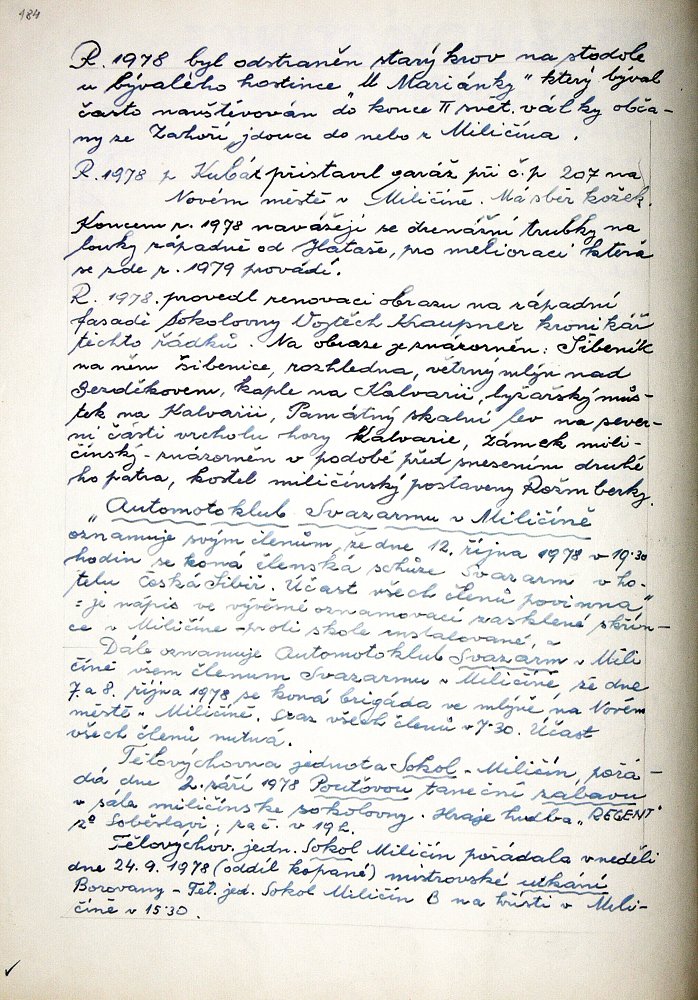 184
R. 1978 byl odstraněn starý krov na stodole
u bývalého hostince „U Mariánky" který býval
často navštěvován do konce II svět. války obča-
ny ze Zahoří, jdouce do nebo z Miličína.
R. 1978 p Kubát přistavil garáž při č.p 207 na
Novém městě v Miličíně. Má sběr kožek.
Koncem r. 1978 navážejí se drenážní trubky na
louky západně od Hataše, pro melioraci která
se zde r. 1979 provádí.
R. 1978. provedl renovaci obrazu na západní
fasadě Sokolovny Vojtěch Kraupner kronikář
těchto řádků. Na obraze je znázorněn: Šibeník
na něm šibenice, rozhledna, větrný mlýn nad
Bezděkovem, kaple na Kalvarii, lyžařský můs-
tek na Kalvarii, Památný skalní lev na sever-
ní části vrcholu hory Kalvarie, Zámek mili-
čínský - znázorněn v podobě před snesením druhé
ho patra, kostel miličínský postaveny Rožmberky.
„Automotoklub Svazarmu v Miličíně
oznamuje svým členům, že dne 12. října 1978 v 19·30
hodin se koná členská schůze Svazarm v ho-
telu Česká Sibiř. Účast všech členů povinna"
= je nápis ve vývěsné oznamovací zasklené skřín-
ce v Miličíně - proti škole instalované, a
Dále oznamuje Automotoklub Svazarm v Mili
číně všem členum Svazarmu v Miličíně, že dne
7. a 8. října 1978 se koná brigáda ve mlýně na Novém
městě v Miličíně. Sraz všech členů v 7·30. Účast
všech členů nutná.
Tělovýchovna jednota Sokol - Miličín, pořá-
dá dne 2. září 1978 Pouťovou taneční zabavu
v sále miličínské sokolovny. Hraje hudba „REGENT"
ze Soběslavi; zač. v 19h.
Tělovýchov. jedn. Sokol Miličín pořádala v neděli
dne 24. 9. 1978 (oddíl kopané) mistrovské utkání
Borovany - Těl. jed. Sokol Miličín B na hřišti v Mili-
číně v 15·30.